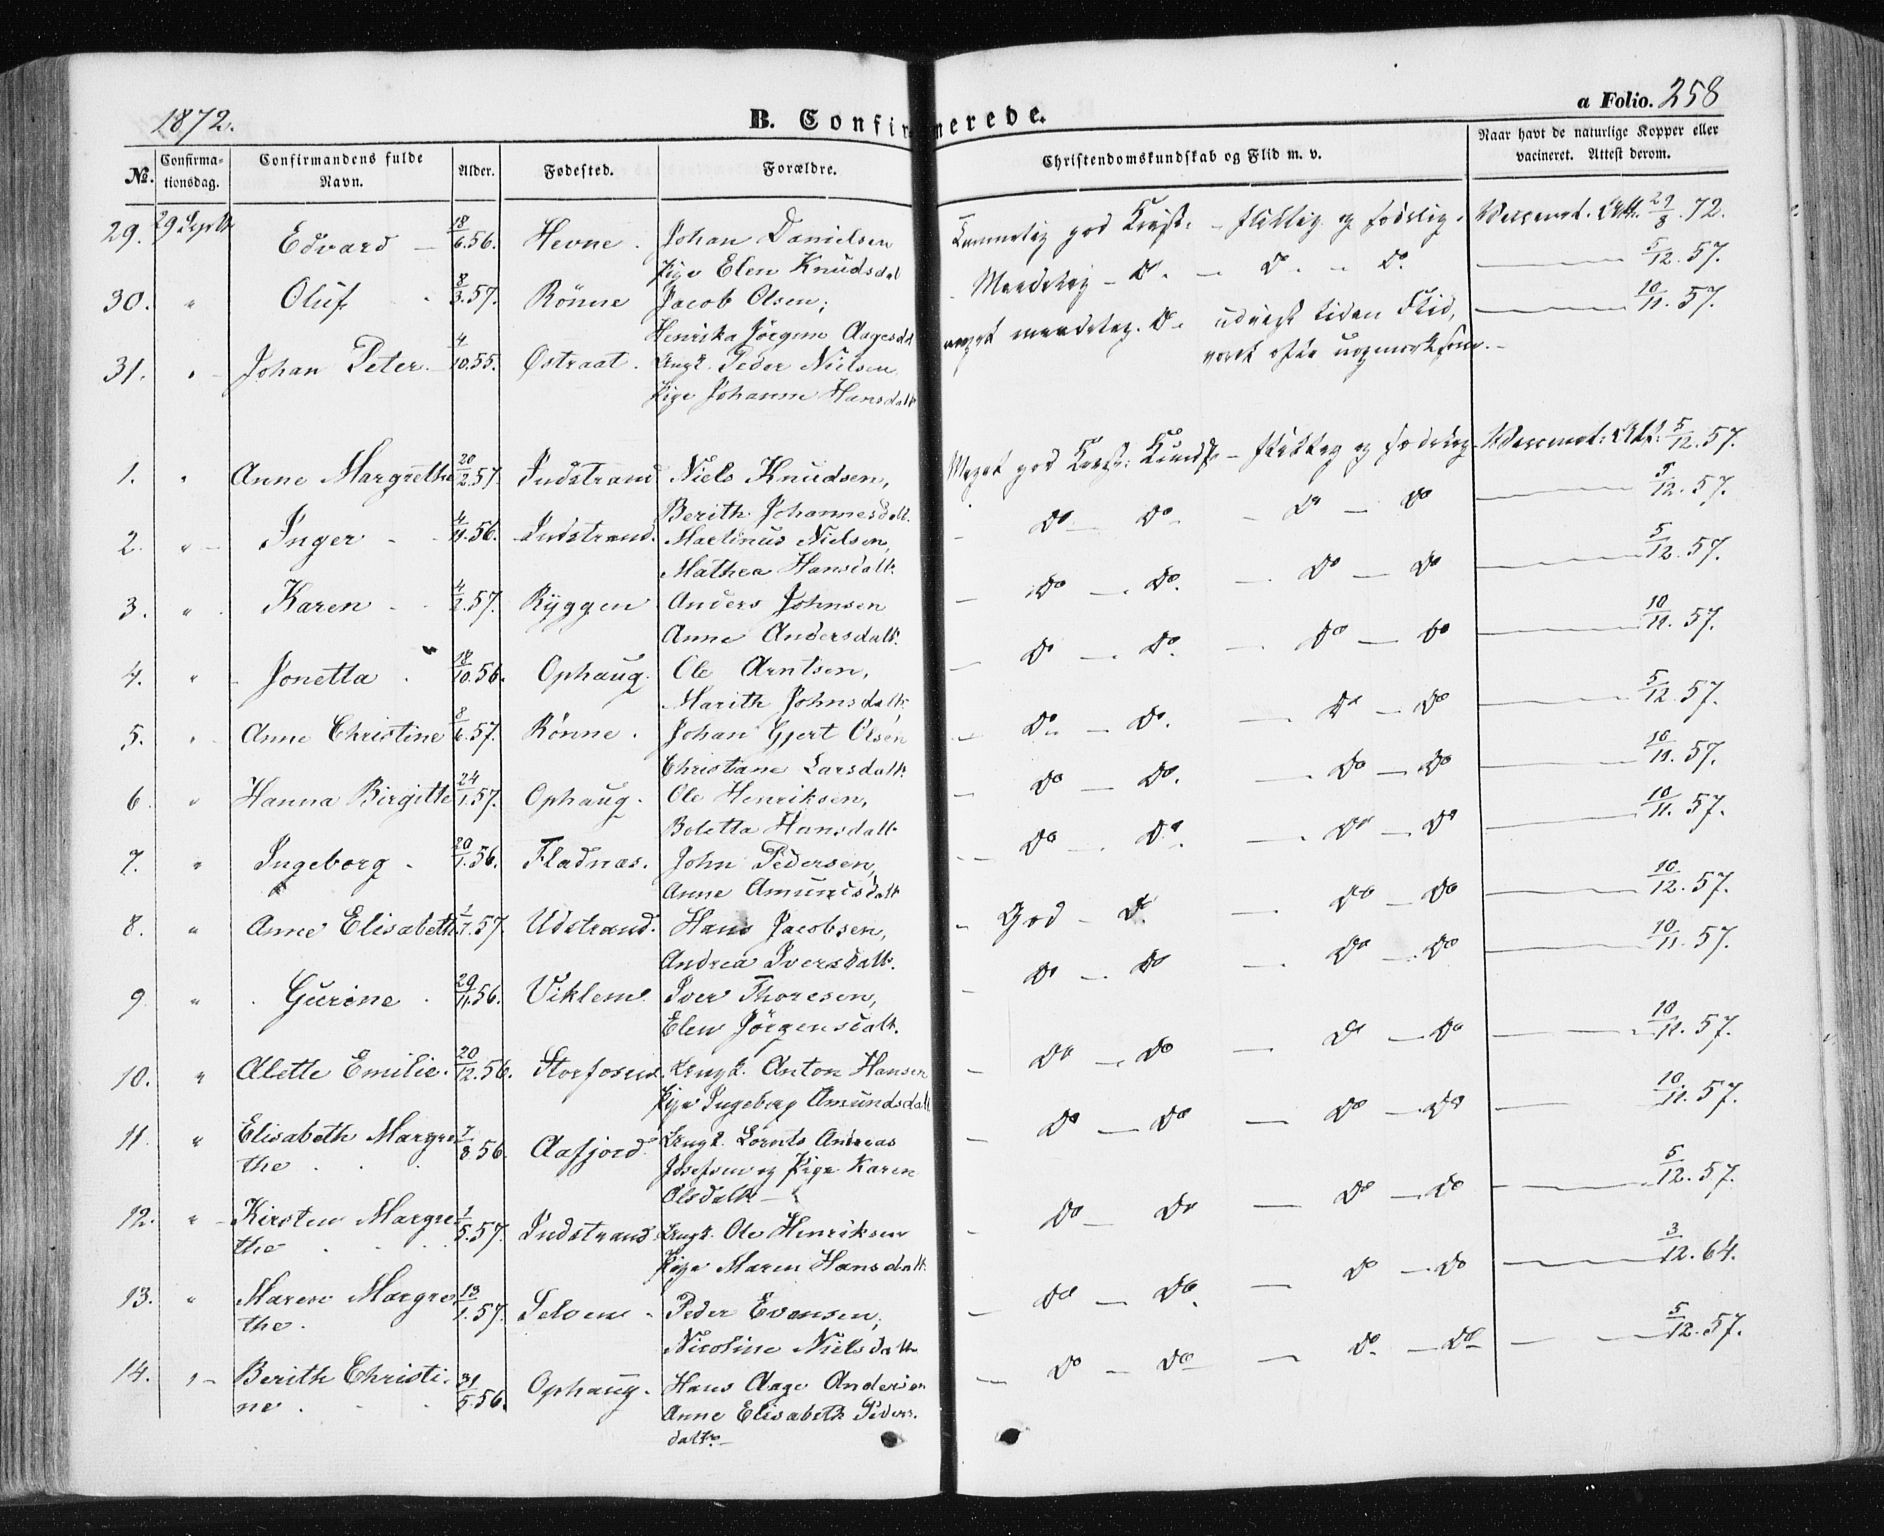 1872.
B. Confirmerede.
a Folio. 258
No. Confirmationsdag. Confirmandens fulde Navn. Alder. Fødested. Forældre. Christendomskundskab og Flid m. v. Naar havt de naturlige Kopper eller vacineret. Attest derom.
29. 29 Septbr Edvard 18/6.56. Hevne. Johan Danielsen flittig og sædelig. Vaccinat. Att. 29/8.72.
Pige Elen Knudsdal
30. " Oluf 8/3.57. Rönne Jacob Olsen; Maadelig - Do. - Do. - Do. 5/12.57.
Henrika Jörgine Aagesdt
31. " Johan Peter. 4/10.55. Østraat. Ungk. Peder Nielsen meget maadelig. Do. udviist liden Flid, 10/11.57.
Pige Johanna Hansdatt
1. " Anne Margrethe 20/2.57 Indstrand Niels Knudsen, Meget god Christ. Kundsk. - flittig og sædelig Vaccinat. Att. 5/12.57.
Berith Johannesdatt.
2. " Inger 4/11.56. Indstrand. Martinus Nielsen, Do - Do - Do - Do 5/12.57.
Mathea Hansdatt.
3. " Karen 4/2.57. Ryggen Anders Johnsen Do - Do. - Do - Do 5/12.57.
Anne Andersdatt.
4. " Jonetta 18/10.56. Ophaug. Ole Arntsen, Do - Do. - Do - Do 10/11.57.
Marith Johnsdatt.
5. " Anne Christine 8/6.57. Rønne. Johan Gjert Olsen Do - Do. - Do - Do 5/12.57.
Christiane Larsdatt.
6. " Hanna Birgitte 24/1.57. Ophaug. Ole Henriksen, Do - Do. - Do - Do 10/11.57.
Boletta Hansdatt.
7. " Ingeborg 20/1.56. Fladnæs. John Pedersen, Do - Do - Do - Do 10/11.57.
Anne Amundsdatt
8. " Anne Elisabeth 1/1.57. Udstrand. Hans Jacobsen, God - Do. - Do - Do 10/12.57.
Andrea Iversdatt.
9. " Gurine 29/11.56. Viklem Iver Thoresen, Do - Do - Do - Do 10/11.57.
Elen Jörgensdatt.
10. " Alette Emilie. 20/12.56. Storfosen. Ungk. Anton Hansen Do - Do - Do - Do 10/11.57.
Pige Ingeborg Amundsdatt
11. " Elisabeth Margre 7/8.56. Aafjord. Ungk. Lornts Andreas Do - Do - Do - Do 10/11.57.
the Josefsen og Pige Karen
Olsdatt.
12. " Kirsten Margre 1/5.57. Indstrand Ungk. Ole Henriksen Do - Do - Do - Do 5/12.57.
the Pige Maren Hansdatt.
13. " Maren Margre 13/1.57. Selven Peder Evensen, Do - Do. - Do - Do 3/12.64.
the. Nicoline Nielsdatt.
14. " Berith Christi- 31/5.56. Ophaug. Hans Aage Andersen Do - Do - Do - Do 5/12.57.
ne Anne Elisabeth Peders-
datt.